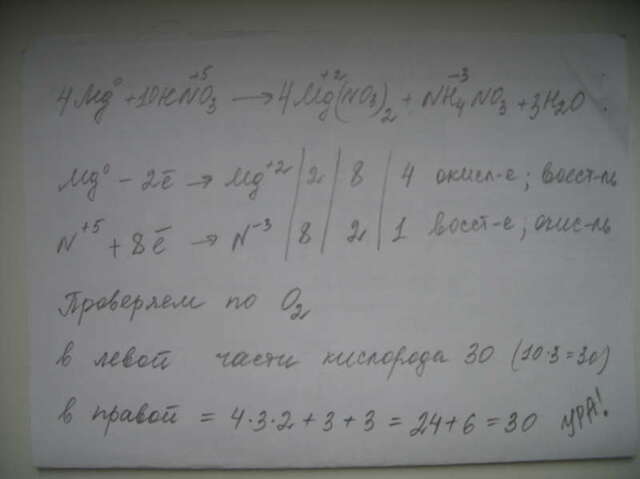 4Mg⁰ + 10HN⁺⁵O₃ → 4Mg⁺²(NO₃)₂ + N⁻³H₄NO₃ + 3H₂O
Mg⁰ - 2ē → Mg⁺² | 2 | 8 | 4 окисл-е; восст-ль
N⁺⁵ + 8ē → N⁻³ | 8 | 2 | 1 восст-е; окис-ль
Проверяем по O₂
в левой части кислорода 30 (10·3=30)
в правой = 4·3·2 + 3 + 3 = 24+6 = 30 УРА!